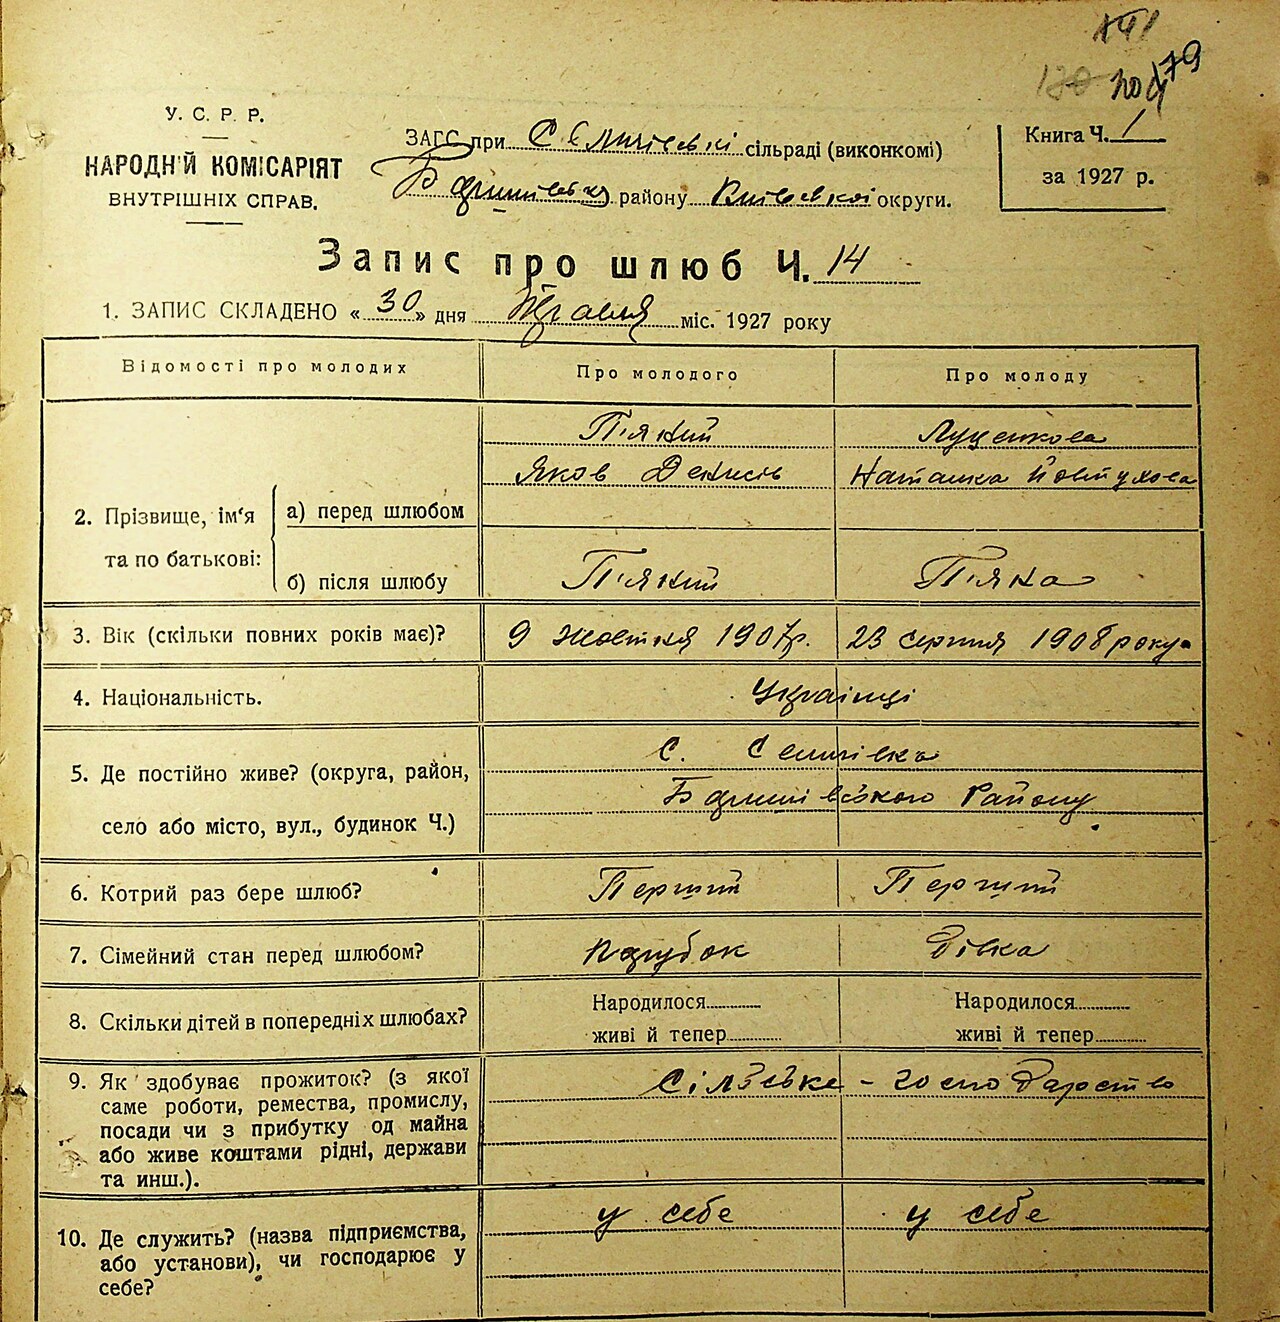 179
У. С. Р. Р.
НАРОДНІЙ КОМІСАРІЯТ
ВНУТРІШНІХ СПРАВ.
ЗАГС при Семичівські сільраді (виконкомі)
Баришівськ району Київської округи.
Книга Ч. 1
за 1927 р.
Запис про шлюб Ч. 14
1. ЗАПИС СКЛАДЕНО « 30 » дня Травня міс. 1927 року
Відомості про молодих
Про молодого
Про молоду
2. Прізвище, ім'я та по батькові:
а) перед шлюбом
П'який
Яков Денисів
Луценкова
Наталка Йовтухова
б) після шлюбу
П'який
П'яка
3. Вік (скільки повних років має)?
9 жовтня 1907р.
23 серпня 1908 року
4. Національність.
Українці
5. Де постійно живе? (округа, район,
село або місто, вул., будинок Ч.)
С. Семичівка
Баришівського Району
6. Котрий раз бере шлюб?
Перший
Перший
7. Сімейний стан перед шлюбом?
Парубок
Дівка
8. Скільки дітей в попередніх шлюбах?
Народилося
живі й тепер
Народилося
живі й тепер
9. Як здобуває прожиток? (з якої
саме роботи, ремества, промислу,
посади чи з прибутку од майна
або живе коштами рідні, держави
та инш.).
Сільське - господарство
10. Де служить? (назва підприємства,
або установи), чи господарює у
себе?
у себе
у себе